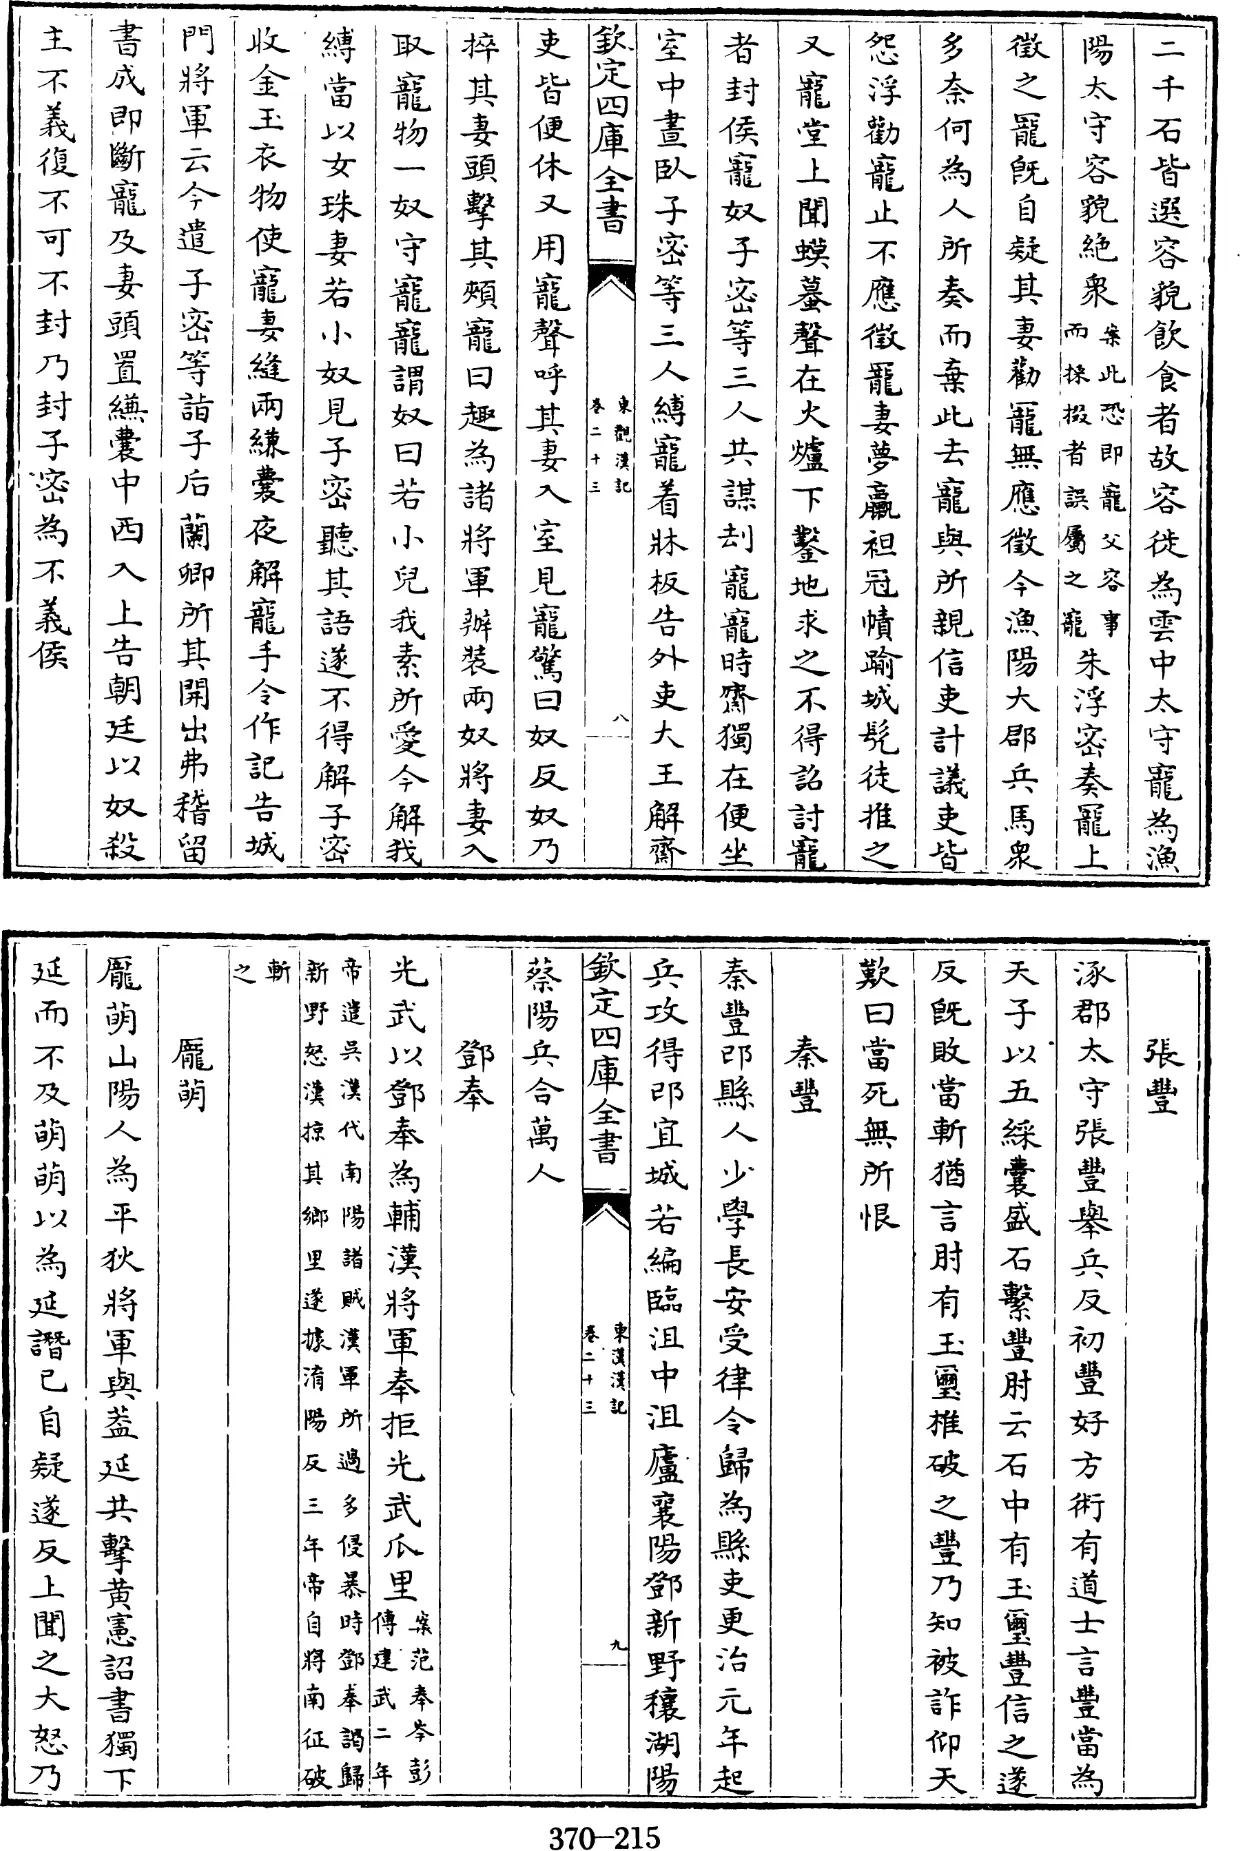 二千石皆選容貌飲食者故容徙為雲中太守寵為漁
陽太守容貌絶衆案此恐即寵父容事而採掇者誤屬之寵朱浮密奏寵上
徵之寵旣自疑其妻勸寵無應徵今漁陽大郡兵馬衆
多奈何為人所奏而棄此去寵與所親信吏計議吏皆
怨浮勸寵止不應徵寵妻夢羸袒冠幘踰城髠徒推之
又寵堂上聞蟆蟇聲在火爐下鑿地求之不得詔討寵
者封侯寵奴子密等三人共謀刦寵寵時齋獨在便坐
室中晝臥子密等三人縛寵着牀板告外吏大王解齋
欽定四庫全書
東觀漢記
卷二十三
八
吏皆便休又用寵聲呼其妻入室見寵驚曰奴反奴乃
捽其妻頭擊其頰寵曰趣為諸將軍辦裝兩奴將妻入
取寵物一奴守寵寵謂奴曰若小兒我素所愛今解我
縛當以女珠妻若小奴見子密聽其語遂不得解子密
收金玉衣物使寵妻縫兩縑囊夜解寵手令作記告城
門將軍云今遣子密等詣子后蘭卿所其開出弗稽留
書成即斷寵及妻頭置縑囊中西入上告朝廷以奴殺
主不義復不可不封乃封子密為不義侯
張豐
涿郡太守張豐舉兵反初豐好方術有道士言豐當為
天子以五綵囊盛石繫豐肘云石中有玉璽豐信之遂
反旣敗當斬猶言肘有玉璽椎破之豐乃知被詐仰天
歎曰當死無所恨
秦豐
秦豐邔縣人少學長安受律令歸為縣吏更治元年起
兵攻得邔宜城若編臨沮中沮廬襄陽鄧新野穰湖陽
欽定四庫全書
東漢漢記
卷二十三
九
蔡陽兵合萬人
鄧奉
光武以鄧奉為輔漢將軍奉拒光武瓜里案范奉岑彭傳建武二年
帝遣吳漢代南陽諸賊漢軍所過多侵暴時鄧奉謁歸
新野怒漢掠其鄉里遂據淯陽反三年帝自將南征破
斬之
龎萌
龎萌山陽人為平狄將軍與葢延共擊黃憲詔書獨下
延而不及萌萌以為延譖己自疑遂反上聞之大怒乃
370—215